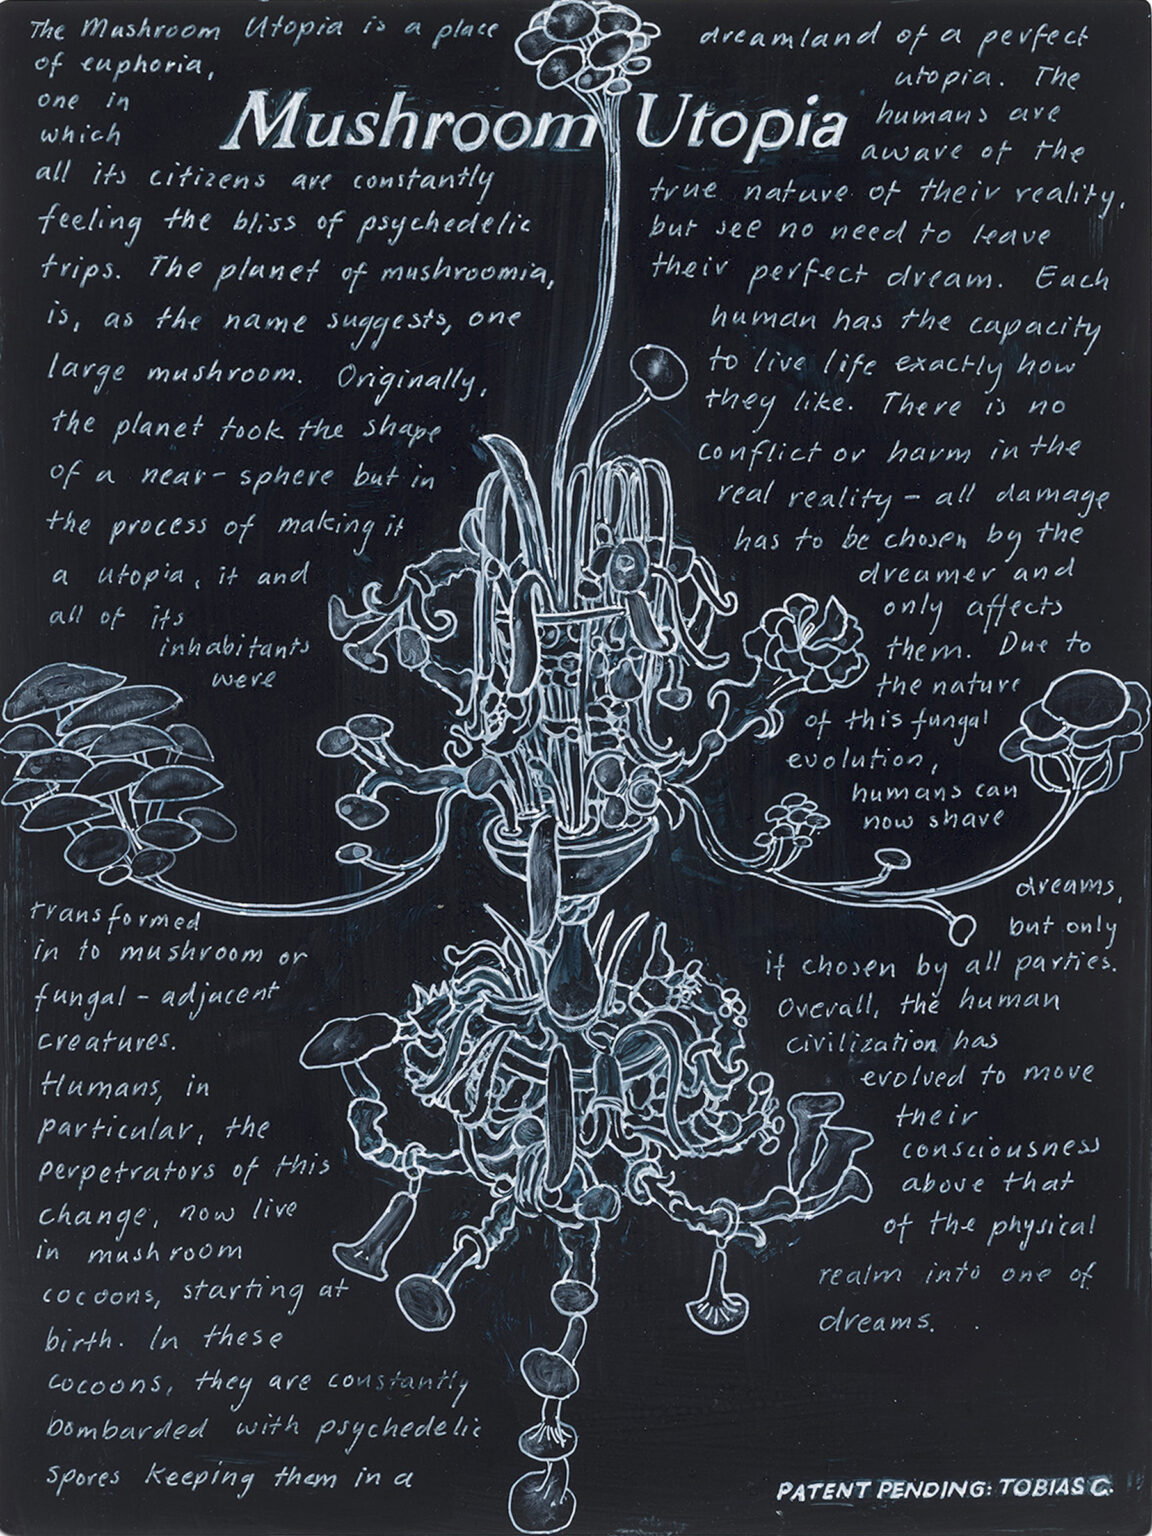 Mushroom Utopia
The Mushroom Utopia is a place
of euphoria,
one in
which
all its citizens are constantly
feeling the bliss of psychedelic
trips. The planet of mushroomia,
is, as the name suggests, one
large mushroom. Originally,
the planet took the shape
of a near-sphere but in
the process of making it
a utopia, it and
all of its
inhabitants
were
transformed
in to mushroom or
fungal-adjacent
creatures.
Humans, in
particular, the
perpetrators of this
change, now live
in mushroom
cocoons, starting at
birth. In these
cocoons, they are constantly
bombarded with psychedelic
spores keeping them in a
dreamland of a perfect
utopia. The
humans are
aware of the
true nature of their reality,
but see no need to leave
their perfect dream. Each
human has the capacity
to live life exactly how
they like. There is no
conflict or harm in the
real reality - all damage
has to be chosen by the
dreamer and
only affects
them. Due to
the nature
of this fungal
evolution,
humans can
now share
dreams,
but only
if chosen by all parties.
Overall, the human
civilization has
evolved to move
their
consciousness
above that
of the physical
realm into one of
dreams.
PATENT PENDING: TOBIAS C.